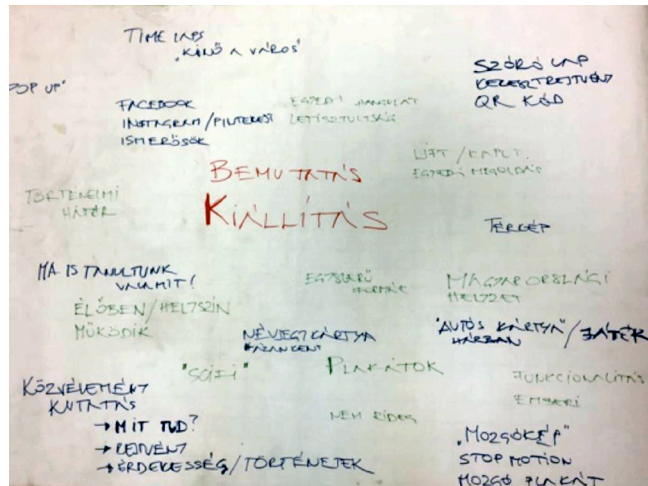 TIME LAPS
"KINŐ A VÁROS"
SZÓRÓLAP
KERESZTREJTVÉNY
QR KÓD
POP UP"
FACEBOOK
INSTAGRAM / PINTEREST
ISMERŐSÖK
EGYEDI HANGULAT
LETISZTULTSÁG
BEMUTATÁS
KIÁLLÍTÁS
LIFT /
EGYEDI MEGOLDÁS
TÖRTÉNELMI
HÁTTÉR
TÉRKÉP
MA IS TANULTUNK
VALAMIT!
EGYSZERŰ
FORMÁK
MAGYARORSZÁGI
HELYZET
ÉLŐBEN / HELYSZÍN
MŰKÖDIK
NÉVJEGYKÁRTYA
"AUTÓS KÁRTYA" / JÁTÉK
"SCIFI"
PLAKÁTOK
FUNKCIONALITÁS
EMBERI
KÖZVÉLEMÉNY
KUTATÁS
→ MIT TUD?
→ REJTVÉNY
→ ÉRDEKESSÉG / TÖRTÉNETEK
NEM RIDEG
"MOZGÓKÉP"
STOP MOTION
MOZGÓ PLAKÁT